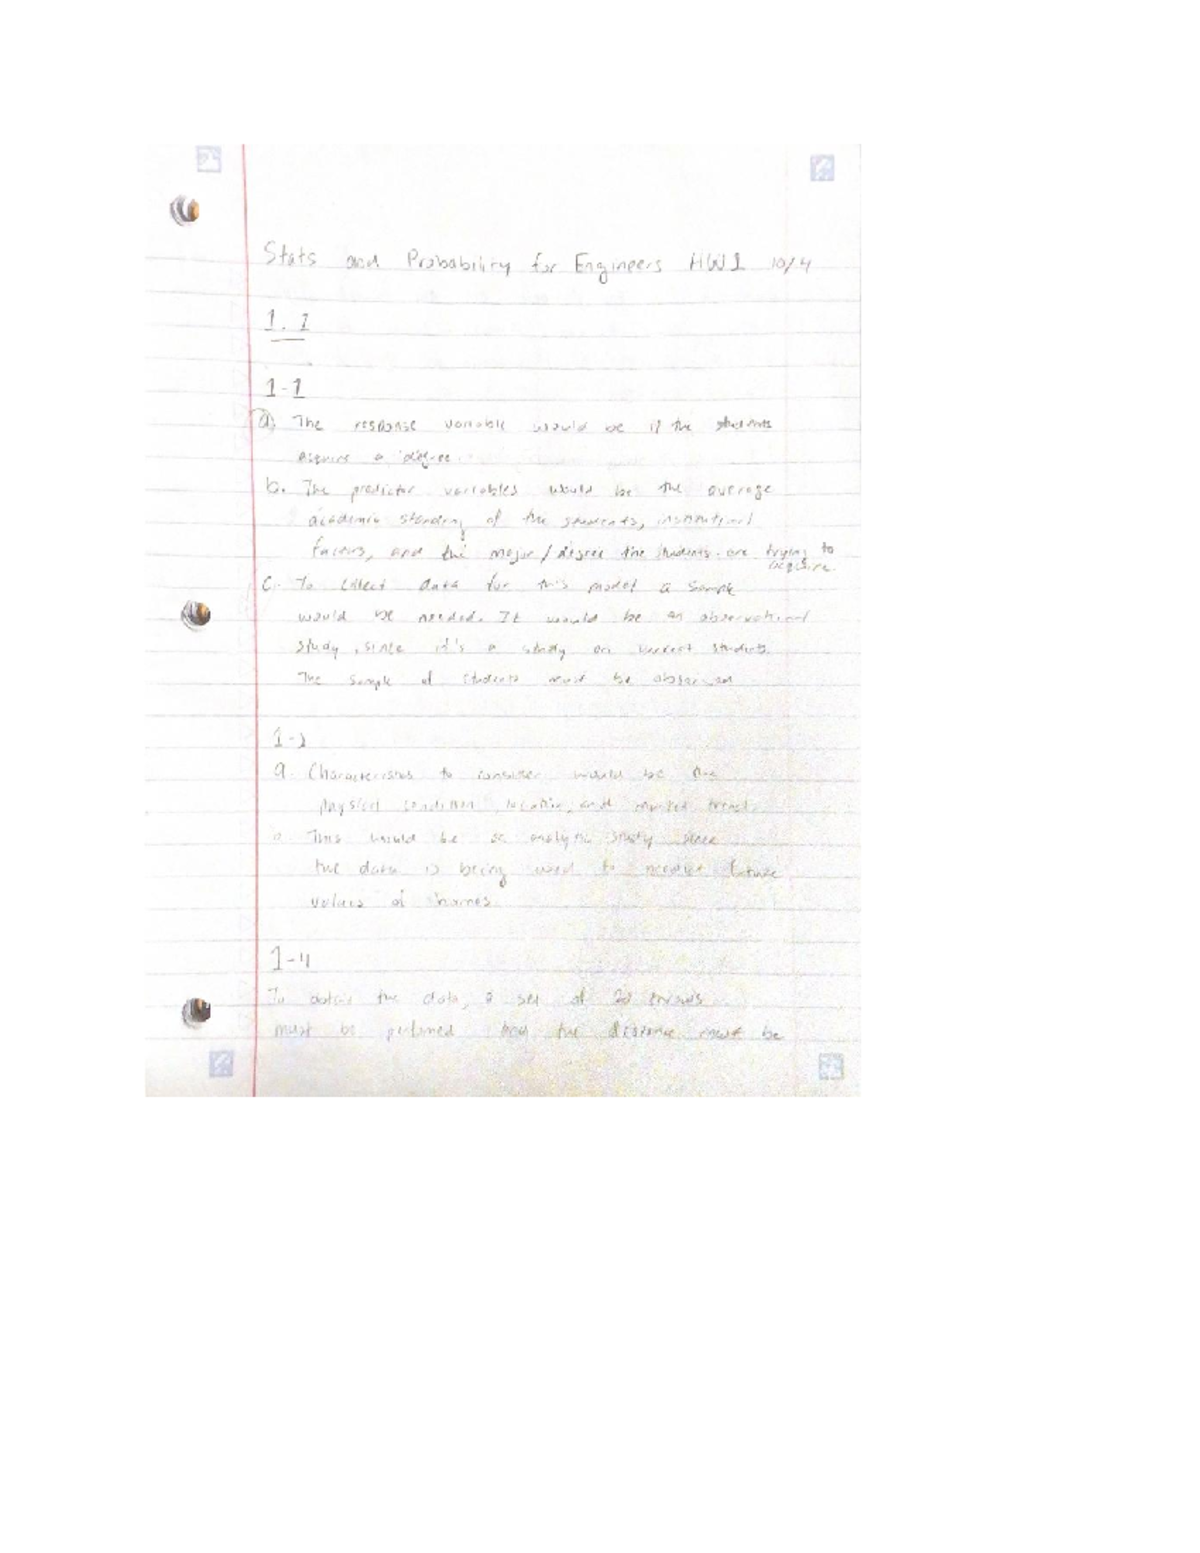 Stats and Probability for Engineers HW1 10/4
1.1
1-1
a. The response variable would be if the students
acquire a degree.
b. The predictor variables would be the average
academic standing of the students, institutional
factors, and the major/degree the students are trying to
acquire.
c. To collect data for this model a sample
would be needed. It would be an observational
study, since it's a study on current students.
The sample of students must be observed
1-2
a. Characteristics to consider would be the
physical condition, location, and market trend
b. This would be an analytic study since
the data is being used to predict future
values of homes.
1-4
To obtain the data, a set of 20 throws
must be performed. the distance must be